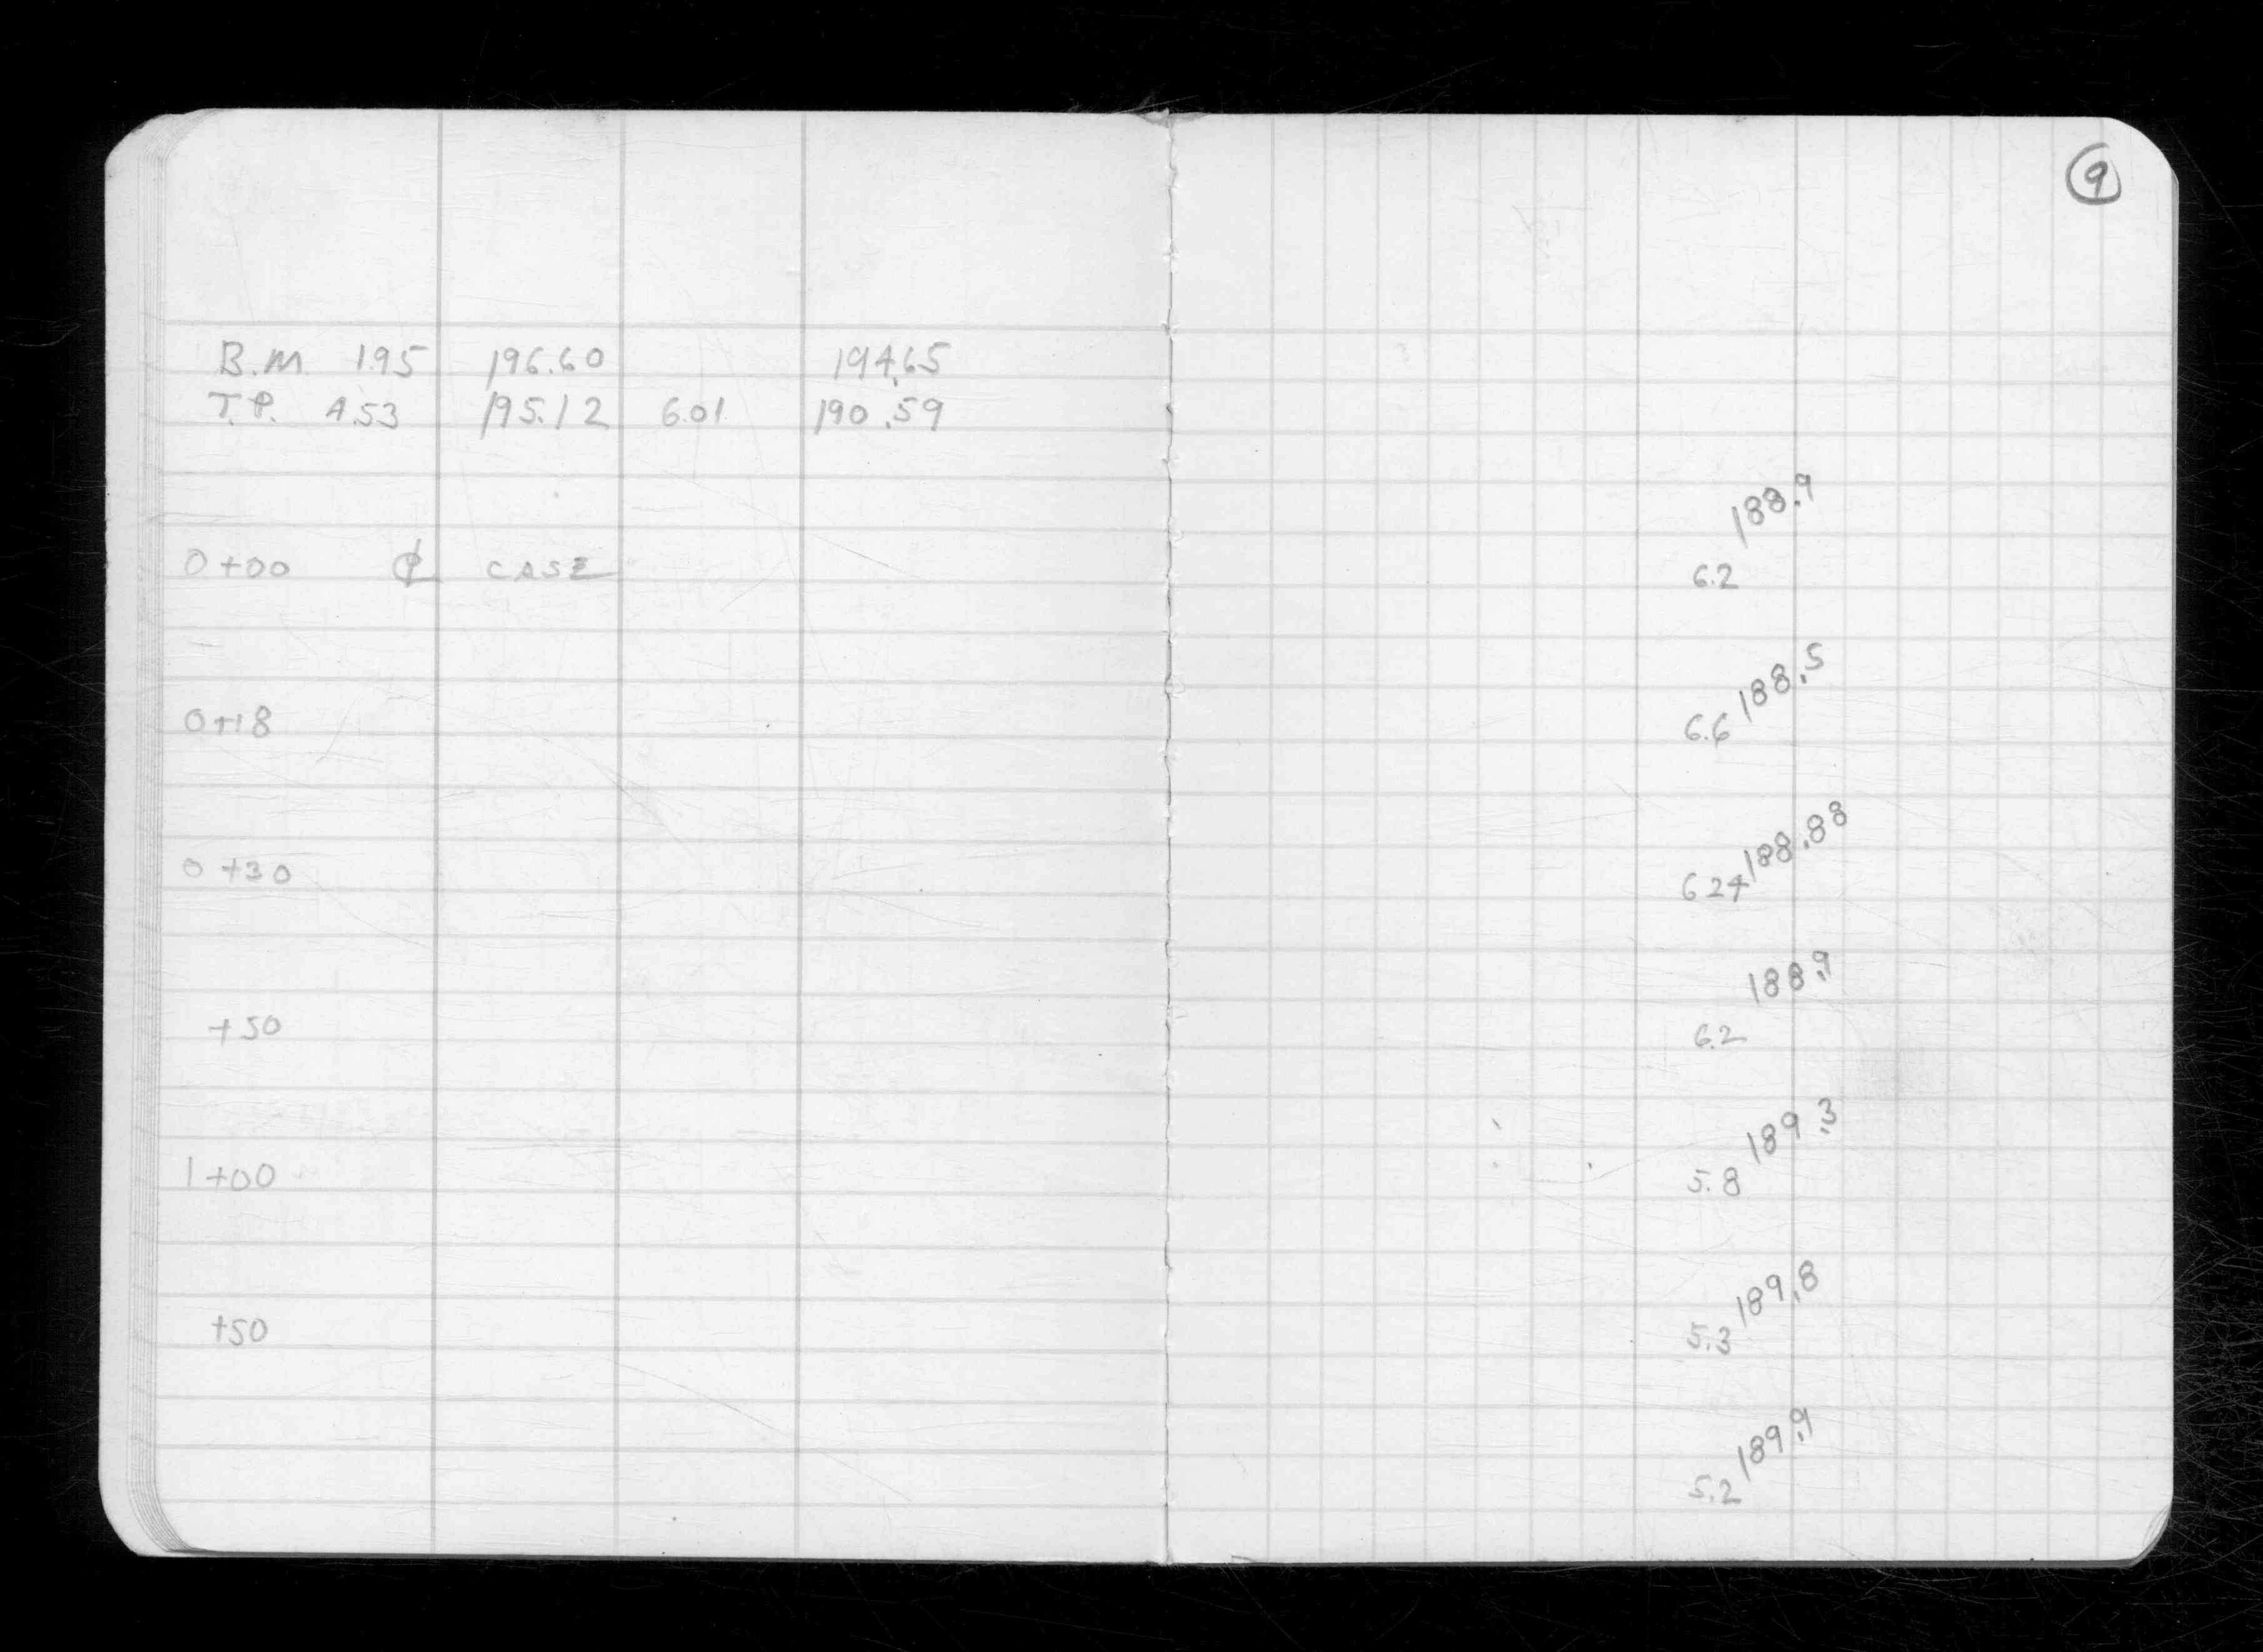 9
B.M. 1.95 196.60 194.65
T.P. 4.53 195.12 6.01 190.59
188.9
0+00 ℄ CASE 6.2
188.5
0+18 6.6
188.88
0+30 6 24
188.9
+50 6.2
189.3
1+00 5.8
189.8
+50 5.3
189.9
5.2